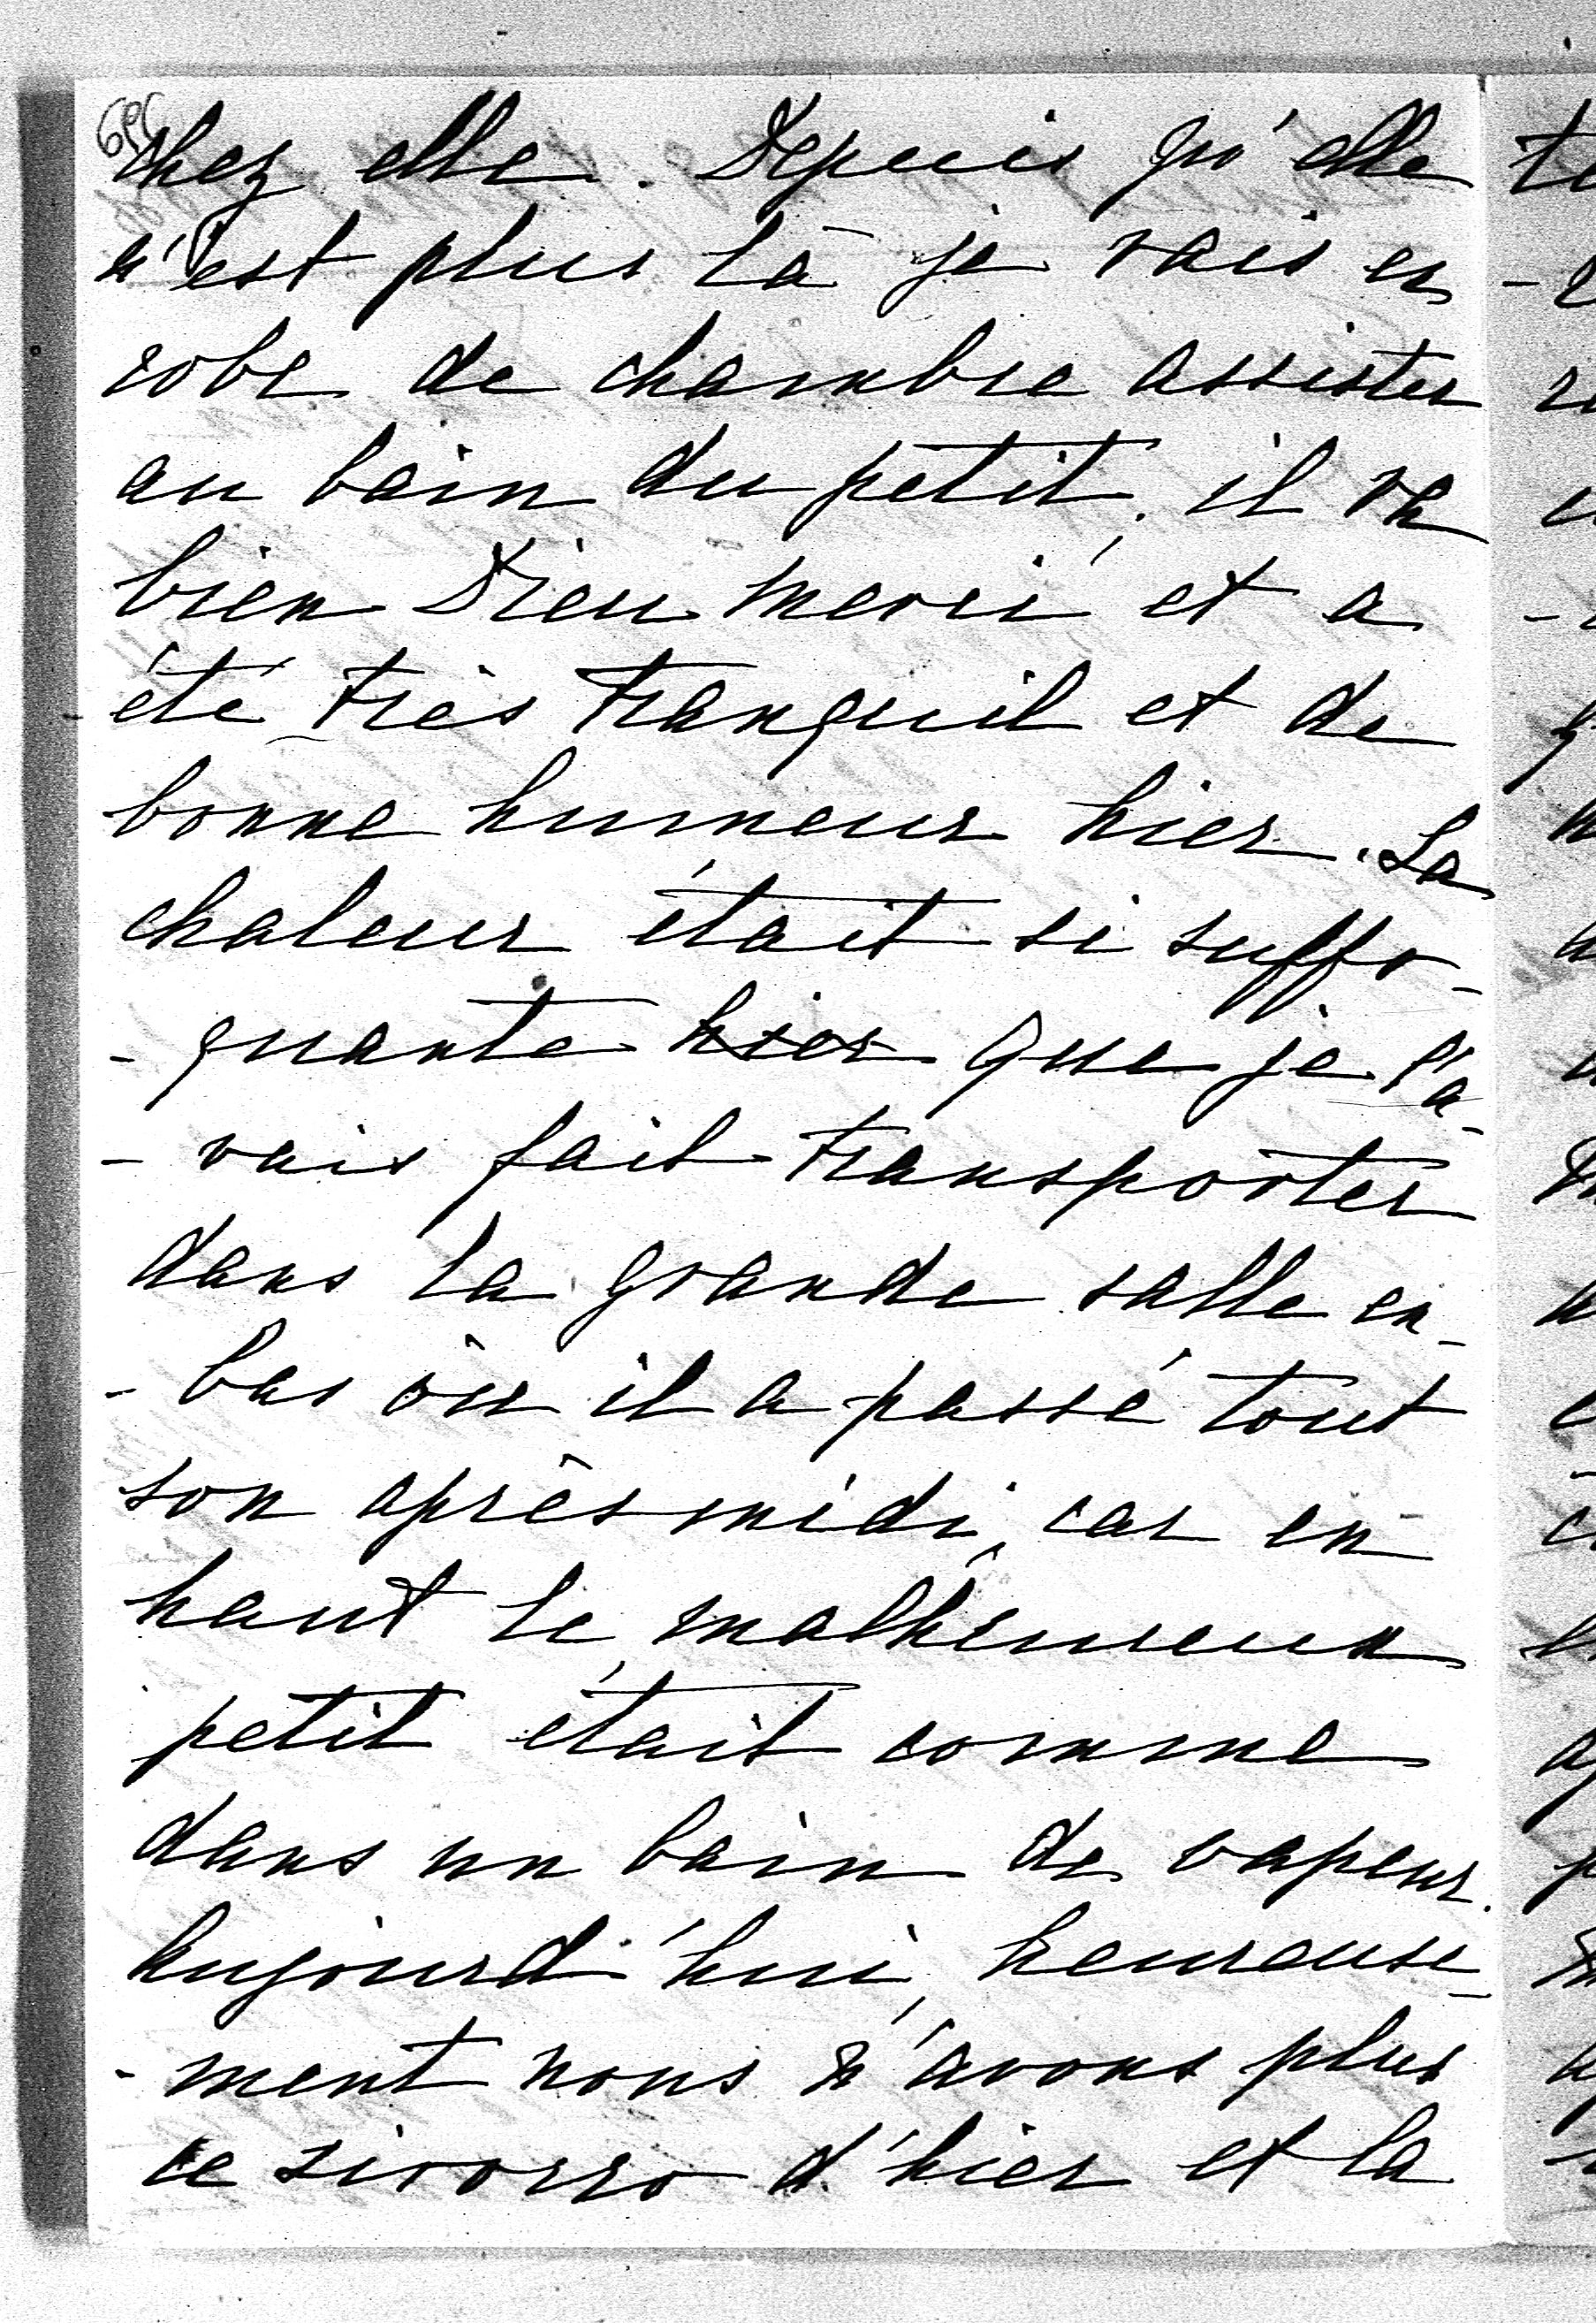 chez elle. Depuis qu'elle
n'est plus là je vais en
robe de chambre assister
au bain du petit, il va
bien Dieu merci et a
été très tranquil et de
bonne humeur hier. La
chaleur était si suffo-
-quante hier que je l'a-
-vais fait transporter
dans la grande salle en-
-bas où il a passé tout
son après midi, car en
haut le malheureux
petit était comme
dans un bain de vapeur.
Aujourd'hui, heureuse-
-ment nous n'avons plus
ce sirocco d'hier et la